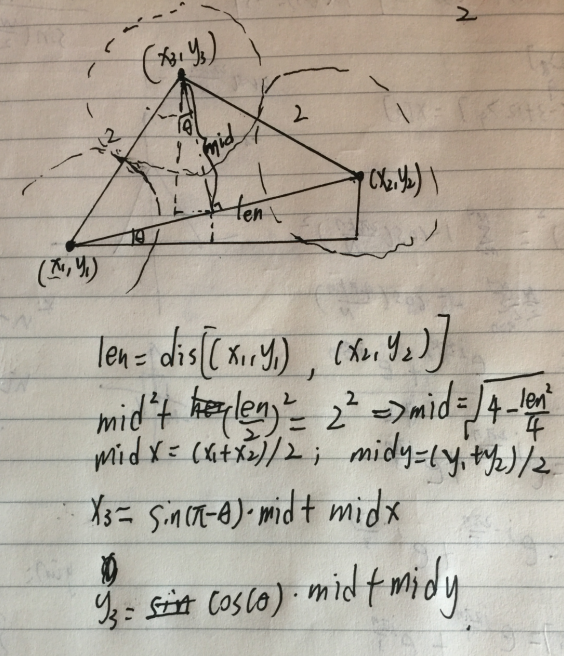 2
(x₃, y₃)
2
2
θ
mid
len
(x₂, y₂)
θ
(x₁, y₁)
len = dis[(x₁, y₁), (x₂, y₂)]
mid² + (len/2)² = 2² => mid = √(4 - len²/4)
mid x = (x₁+x₂)/2 ; midy = (y₁+y₂)/2
x₃ = sin(π-θ)·mid + midx
y₃ = cos(θ)·mid + midy